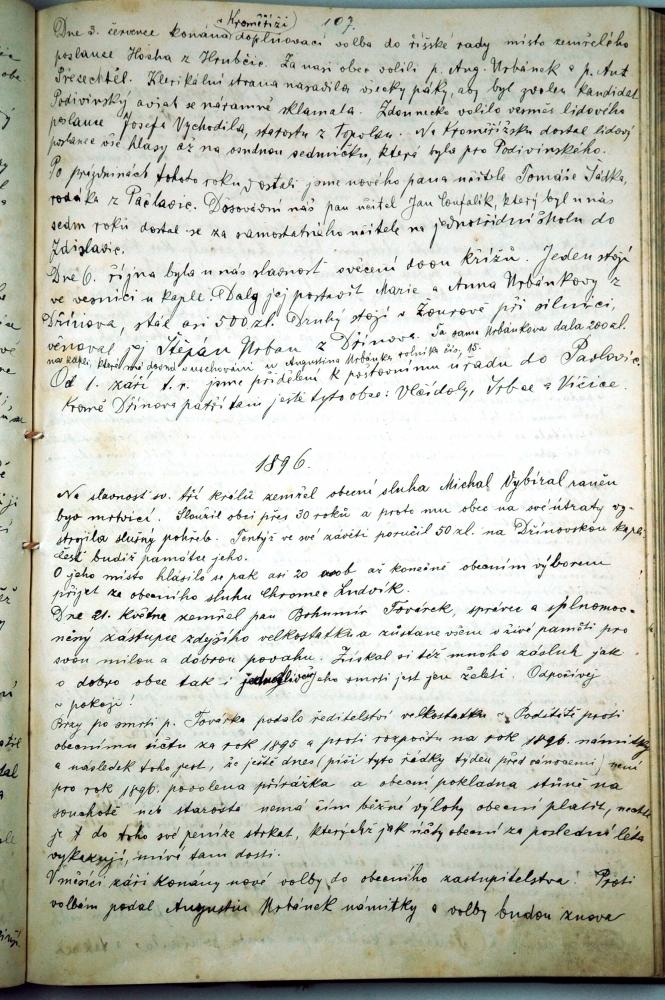 v Kroměříži 107.
Dne 3. července konána doplňovací volba do říšské rady místo zemřelého
poslance Hocha z Hrubčic. Za naši obec volili p. Aug. Urbánek a p. Ant.
Přecechtěl. Klerikální strana nasadila všecky páky, aby byl zvolen kandidat
Podivinský avšak se náramně sklamala. Zdounecko volilo vesměs lidového
poslance Josefa Vychodila, starostu z Topolan. Na Kroměřížsku dostal lidový
poslanec vše hlasy až na osudnou sedmičku, která byla pro Podivinského.
Po prázdninách tohoto roku dostali jsme nového pana učitele Tomáše Sádka,
rodáka z Pačlavic. Dosavadní náš pan učitel Jan Coufalík, který byl u nás
sedm roků dostal se za samostatného učitele na jednotřídní školu do
Zdislavic.
Dne 6. října byla u nás slavnost svěcení dvou křížů. Jeden stojí
ve vesnici u kaple. Daly jej postavit Marie a Anna Urbánkovy z
Dřínova, stál asi 500 zl. Druhý stojí v Zourově při silnici,
věnoval jej Štěpán Urban z Dřínova. Ta samá Urbánkova dala 200 zl.
na kapli, které má dosud v uschování u Augustina Urbánka rolníka čís. 15.
Od 1. září t. r. jsme přiděleni k poštovnímu úřadu do Pavlovic.
Kromě Dřínova patří tam ještě tyto obce: Vlčídoly, Srbce a Vičice.
1896.
Na slavnost sv. tří králů zemřel obecní sluha Michal Vybíral raněn
byv mrtvicí. Sloužil obci přes 30 roků a proto mu obec na své útraty vy-
strojila slušný pohřeb. Tentýž ve své závěti poručil 50 zl. na Dřínovskou kapli
čest budiž památce jeho.
O jeho místo hlásilo se pak asi 20 osob až konečně obecním výborem
přijat za obecního sluhu Chromec Ludvík.
Dne 21. května zemřel pan Bohumír Továrek, správce a splnomoc-
něný zástupce zdejšího velkostatku a zůstane všem v živé paměti pro
svou milou a dobrou povahu. Získal si též mnoho zásluh jak
o dobro obce tak i jednotlivců jeho smrti jest jen želeti. Odpočívej
v pokoji!
Brzy po smrti p. Továrka podalo ředitelství velkostatku v Poděštítě proti
obecnímu účtu za rok 1895 a proti rozpočtu na rok 1896. námitky
a následek toho jest, že ještě dnes (píši tyto řádky týden před vánocemi) není
pro rok 1896. povolena přirážka a obecní pokladna stůně na
souchotě neb starosta nemá čím běžné výlohy obecní platit, nechce-li
je t do toho své peníze strkat, kterýchž jak účty obecní za poslední léta
vykazují, mívá tam dosti.
V měsíci září konány nové volby do obecního zastupitelstva! Proti
volbám podal Augustin Urbánek námitky a volby budou znova